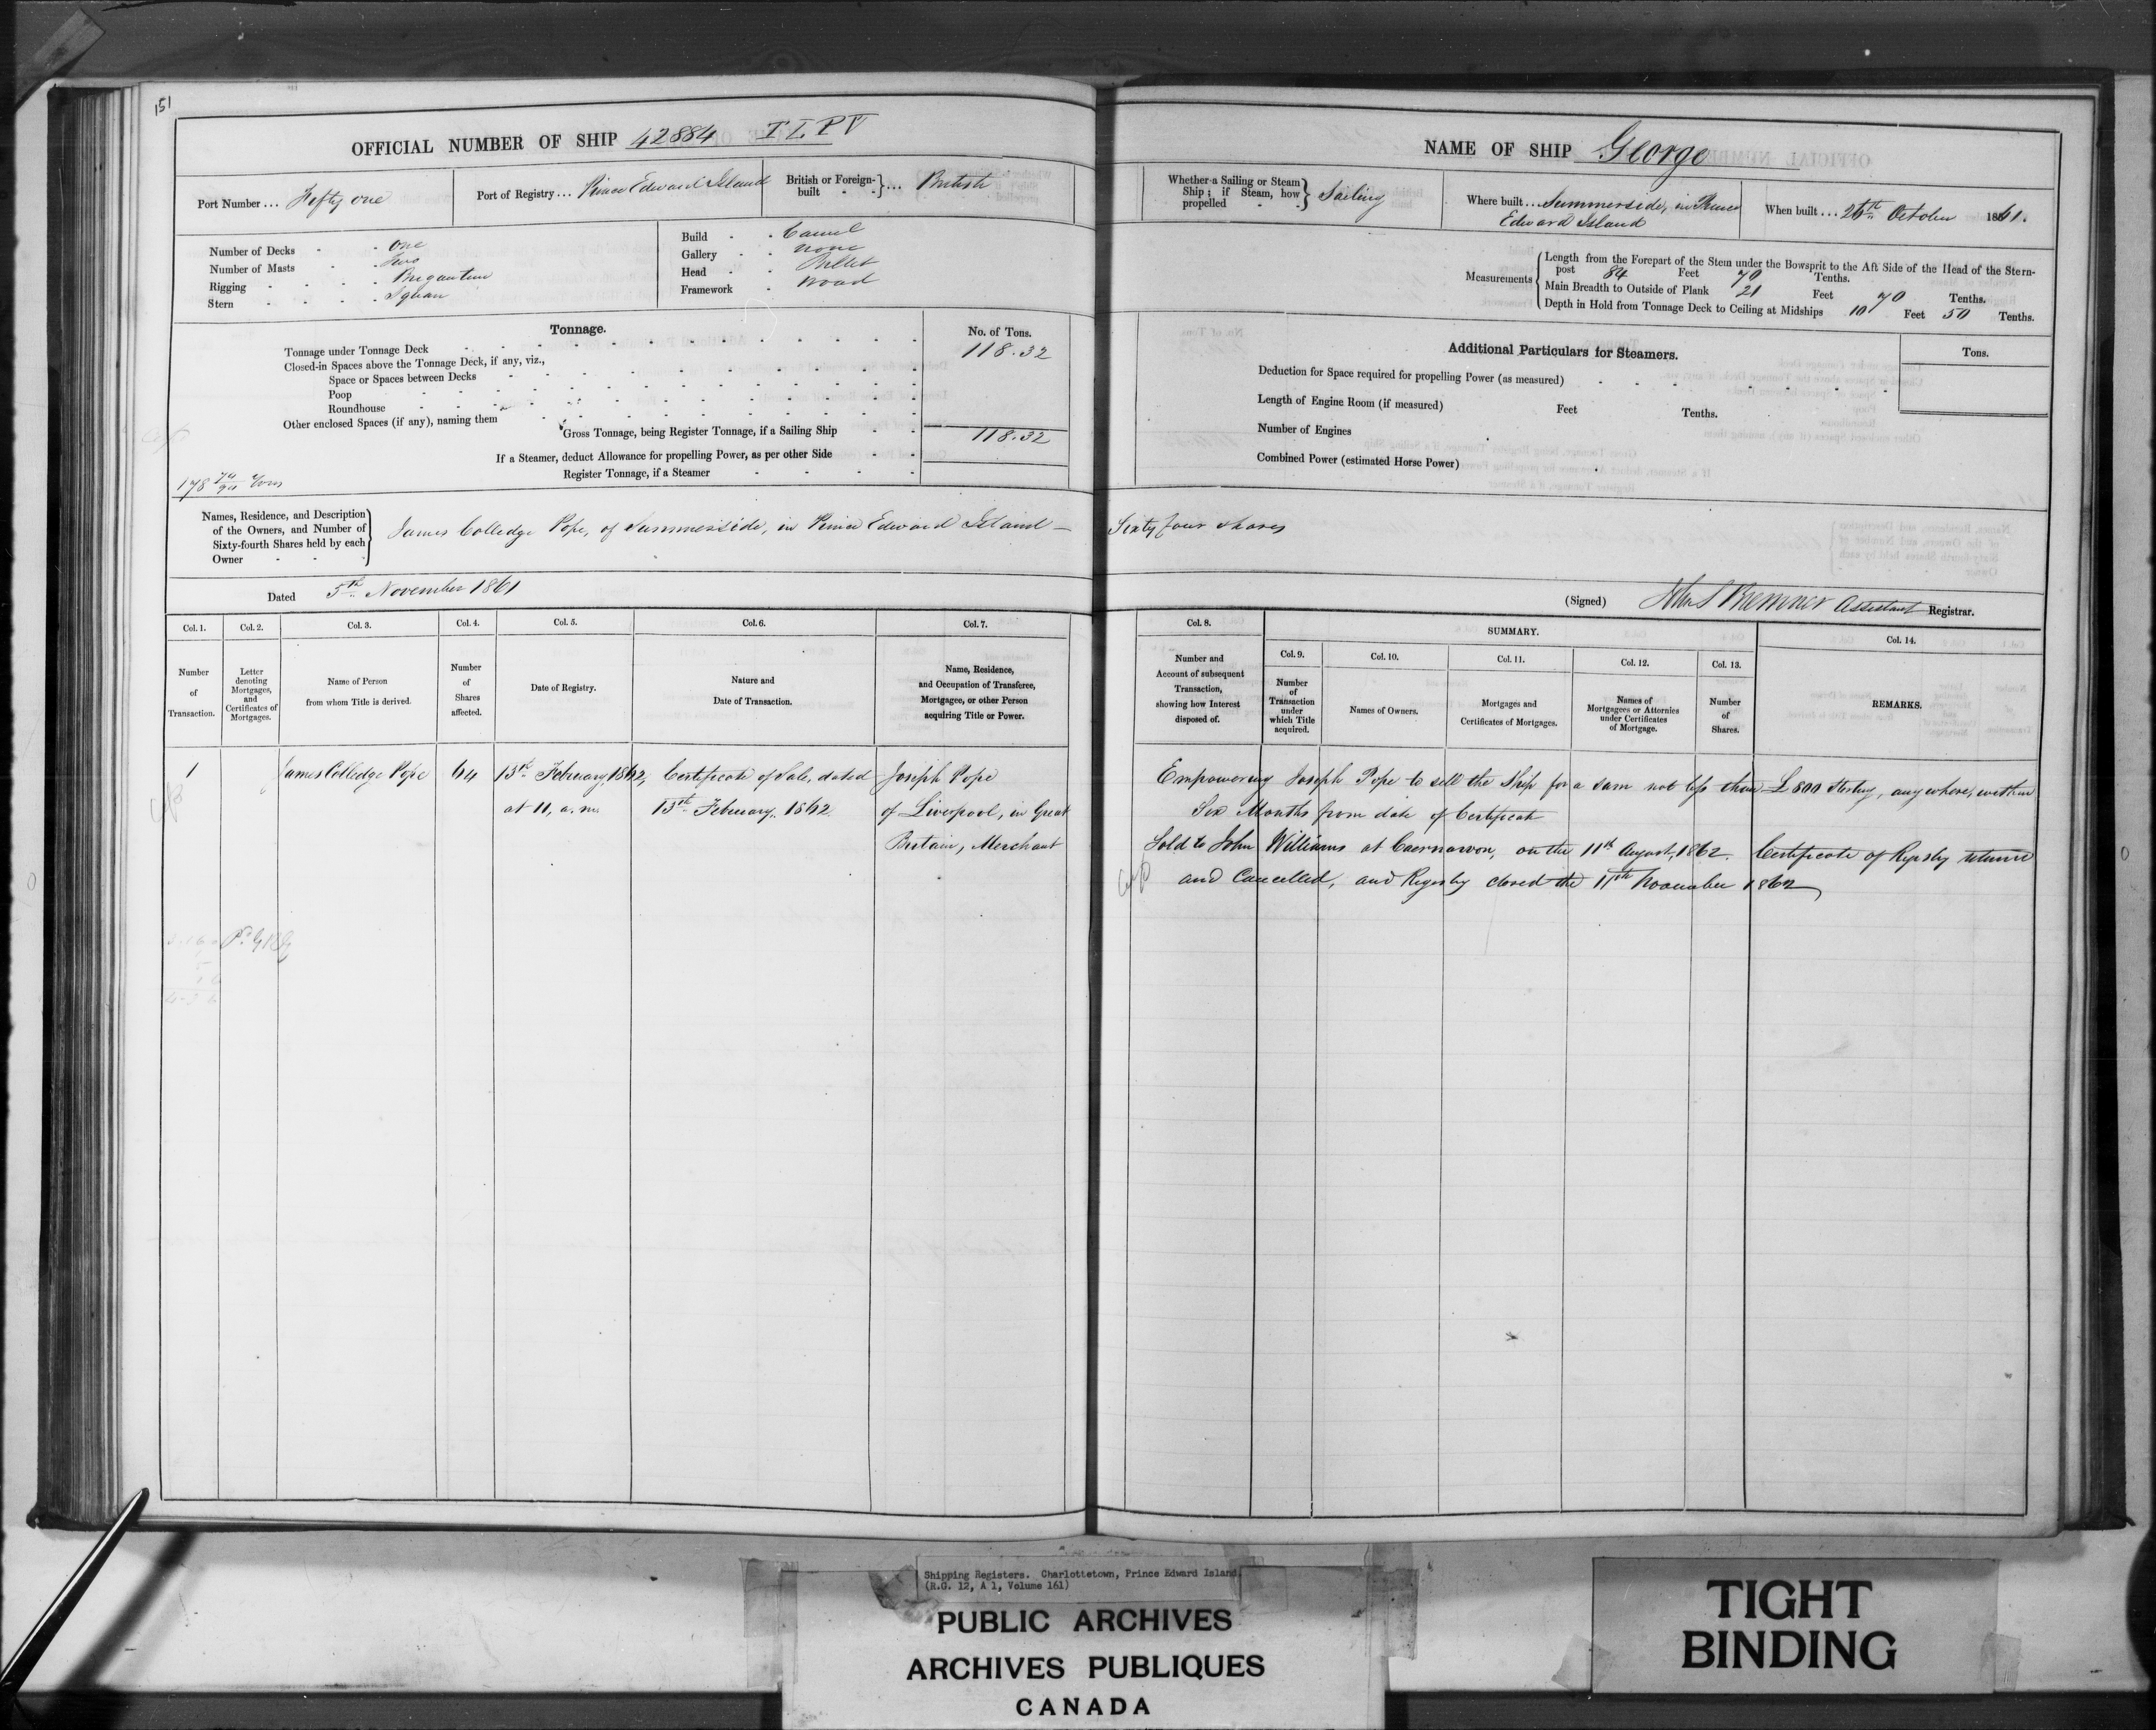 151
OFFICIAL NUMBER OF SHIP 42884 T L P V
Port Number ... Fifty one
Port of Registry ... Prince Edward Island
British or Foreign-built } ... British
Number of Decks - - one
Number of Masts - - Two
Rigging - - - - Brigantine
Stern - - - - Square
Build - - Carvel
Gallery - - none
Head - - Billet
Framework - Wood
Tonnage.
No. of Tons.
Tonnage under Tonnage Deck 118.32
Closed-in Spaces above the Tonnage Deck, if any, viz.,
Space or Spaces between Decks
Poop
Roundhouse
Other enclosed Spaces (if any), naming them
Gross Tonnage, being Register Tonnage, if a Sailing Ship 118.32
If a Steamer, deduct Allowance for propelling Power, as per other Side
Register Tonnage, if a Steamer
178 74/94 Tons
Names, Residence, and Description of the Owners, and Number of Sixty-fourth Shares held by each Owner } James Colledge Pope, of Summerside, in Prince Edward Island —
Dated 5th November 1861
Col. 1. Col. 2. Col. 3. Col. 4. Col. 5. Col. 6. Col. 7.
Number of Transaction.
Letter denoting Mortgages, and Certificates of Mortgages.
Name of Person from whom Title is derived.
Number of Shares affected.
Date of Registry.
Nature and Date of Transaction.
Name, Residence, and Occupation of Transferee, Mortgagee, or other Person acquiring Title or Power.
1 James Colledge Pope 64 13th February, 1862, Certificate of Sale, dated Joseph Pope
at 11, a.m. 13th February, 1862. of Liverpool, in Great
Britain, Merchant
NAME OF SHIP George
Whether a Sailing or Steam Ship; if Steam, how propelled } Sailing
Where built ... Summerside, in Prince
Edward Island
When built ... 26th October 1861.
Measurements { Length from the Forepart of the Stem under the Bowsprit to the Aft Side of the Head of the Stern-
post 84 Feet 70 Tenths.
Main Breadth to Outside of Plank 21 Feet 70 Tenths.
Depth in Hold from Tonnage Deck to Ceiling at Midships 10 Feet 50 Tenths.
Additional Particulars for Steamers.
Tons.
Deduction for Space required for propelling Power (as measured)
Length of Engine Room (if measured) Feet Tenths.
Number of Engines
Combined Power (estimated Horse Power)
Sixty four shares
(Signed) John S Bremner Assistant Registrar.
Col. 8. SUMMARY. Col. 14.
Col. 9. Col. 10. Col. 11. Col. 12. Col. 13.
Number and Account of subsequent Transaction, showing how Interest disposed of.
Number of Transaction under which Title acquired.
Names of Owners.
Mortgages and Certificates of Mortgages.
Names of Mortgagees or Attornies under Certificates of Mortgage.
Number of Shares.
REMARKS.
Empowering Joseph Pope to sell the Ship for a sum not less than £800 Sterling, any where, within
Six Months from date of Certificate
Sold to John Williams at Caernarvon, on the 11th August, 1862. Certificate of Registry returned
and Cancelled, and Registry closed the 11th November 1862
Shipping Registers. Charlottetown, Prince Edward Island.
(R.G. 12, A 1, Volume 161)
PUBLIC ARCHIVES
ARCHIVES PUBLIQUES
CANADA
TIGHT
BINDING